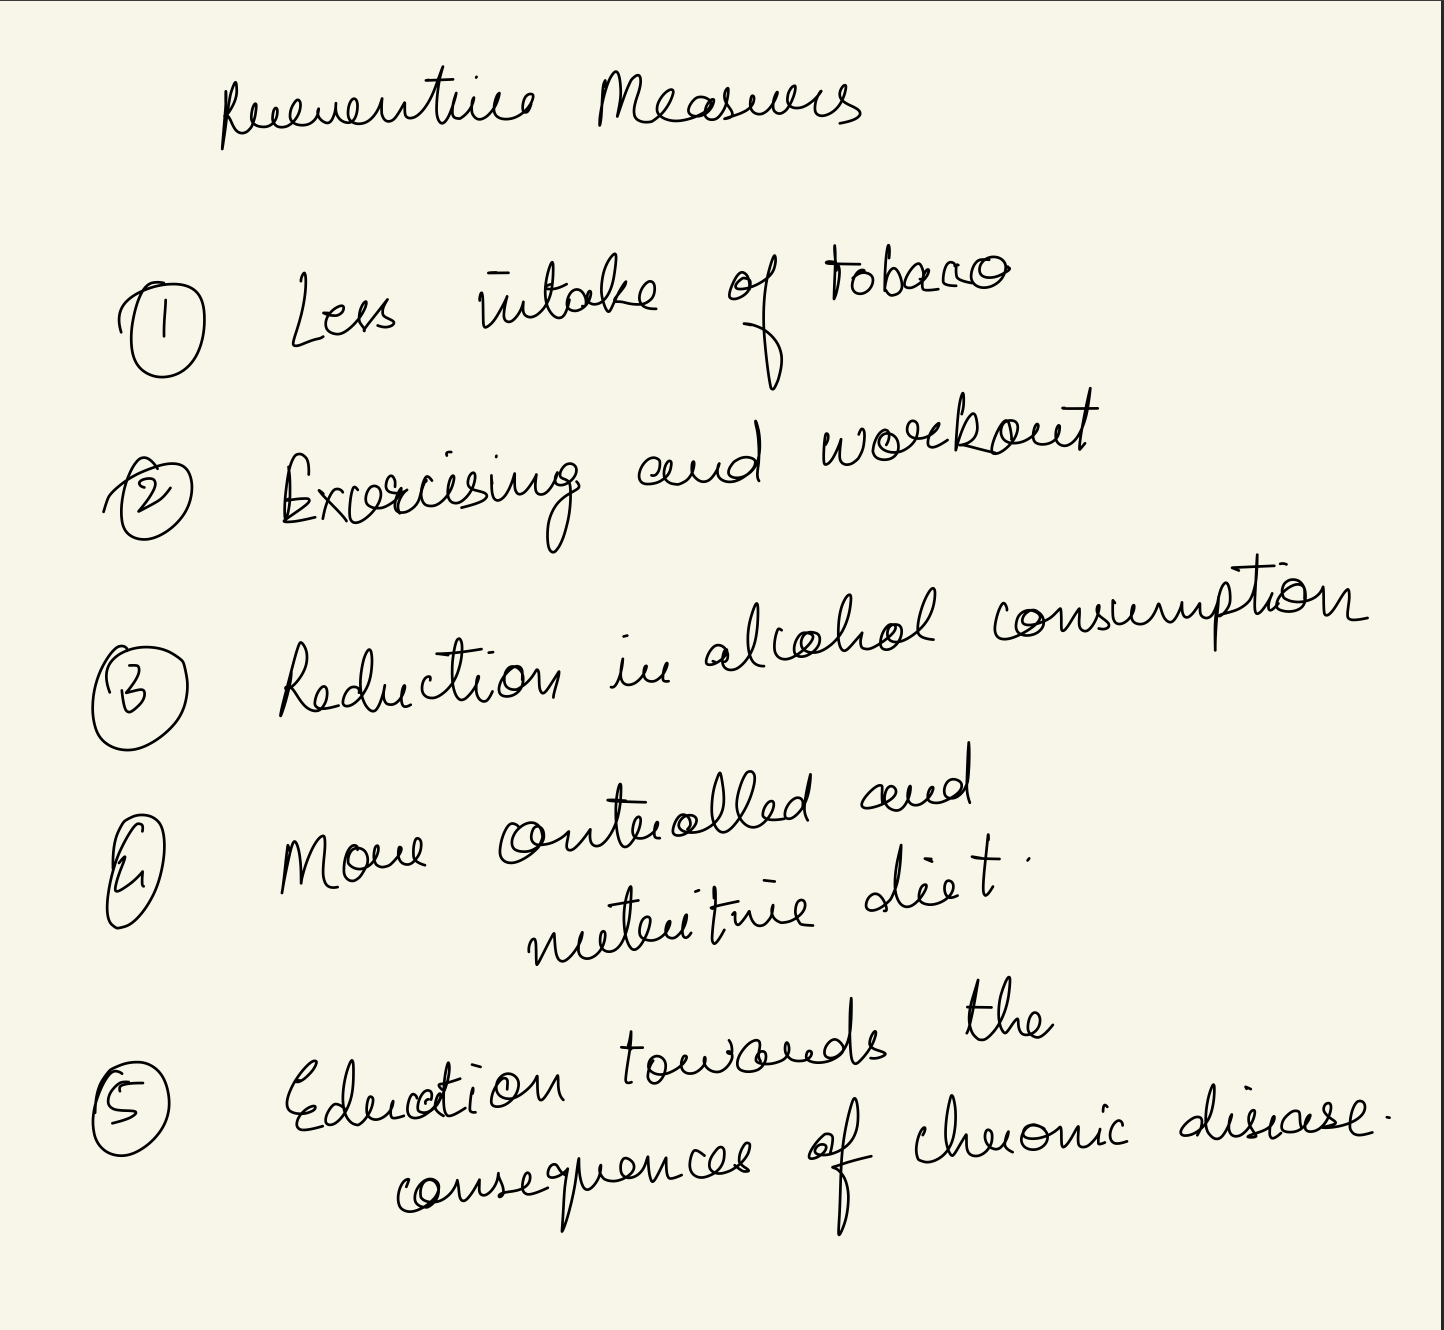 Preventive Measures
① Less intake of tobacco
② Exercising and workout
③ Reduction in alcohol consumption
④ More controlled and
nutritive diet.
⑤ Education towards the
consequences of chronic disease.